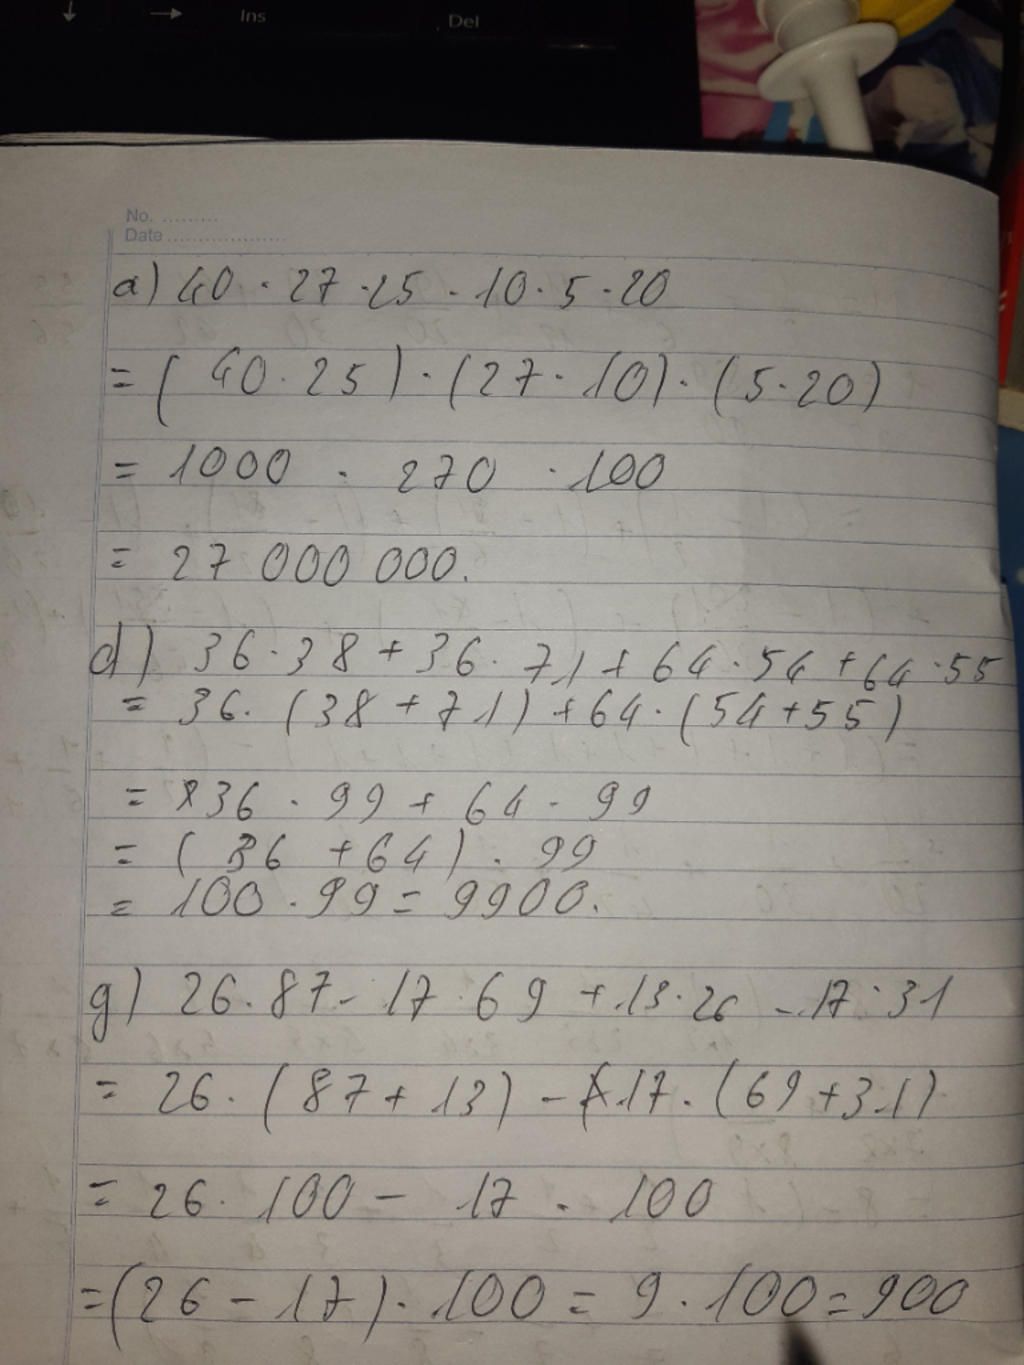 → Ins Del
No. .........
Date ...................
a) 40 . 27 . 25 . 10 . 5 . 20
= ( 40 . 25 ) . ( 27 . 10 ) . ( 5 . 20 )
= 1000 . 270 . 100
= 27 000 000.
d) 36 . 38 + 36 . 71 + 64 . 54 + 64 . 55
= 36 . ( 38 + 71 ) + 64 . ( 54 + 55 )
= 36 . 99 + 64 . 99
= ( 36 + 64 ) . 99
= 100 . 99 = 9900.
g) 26 . 87 - 17 . 69 + 13 . 26 - 17 . 31
= 26 . ( 87 + 13 ) - 17 . ( 69 + 31 )
= 26 . 100 - 17 . 100
= ( 26 - 17 ) . 100 = 9 . 100 = 900